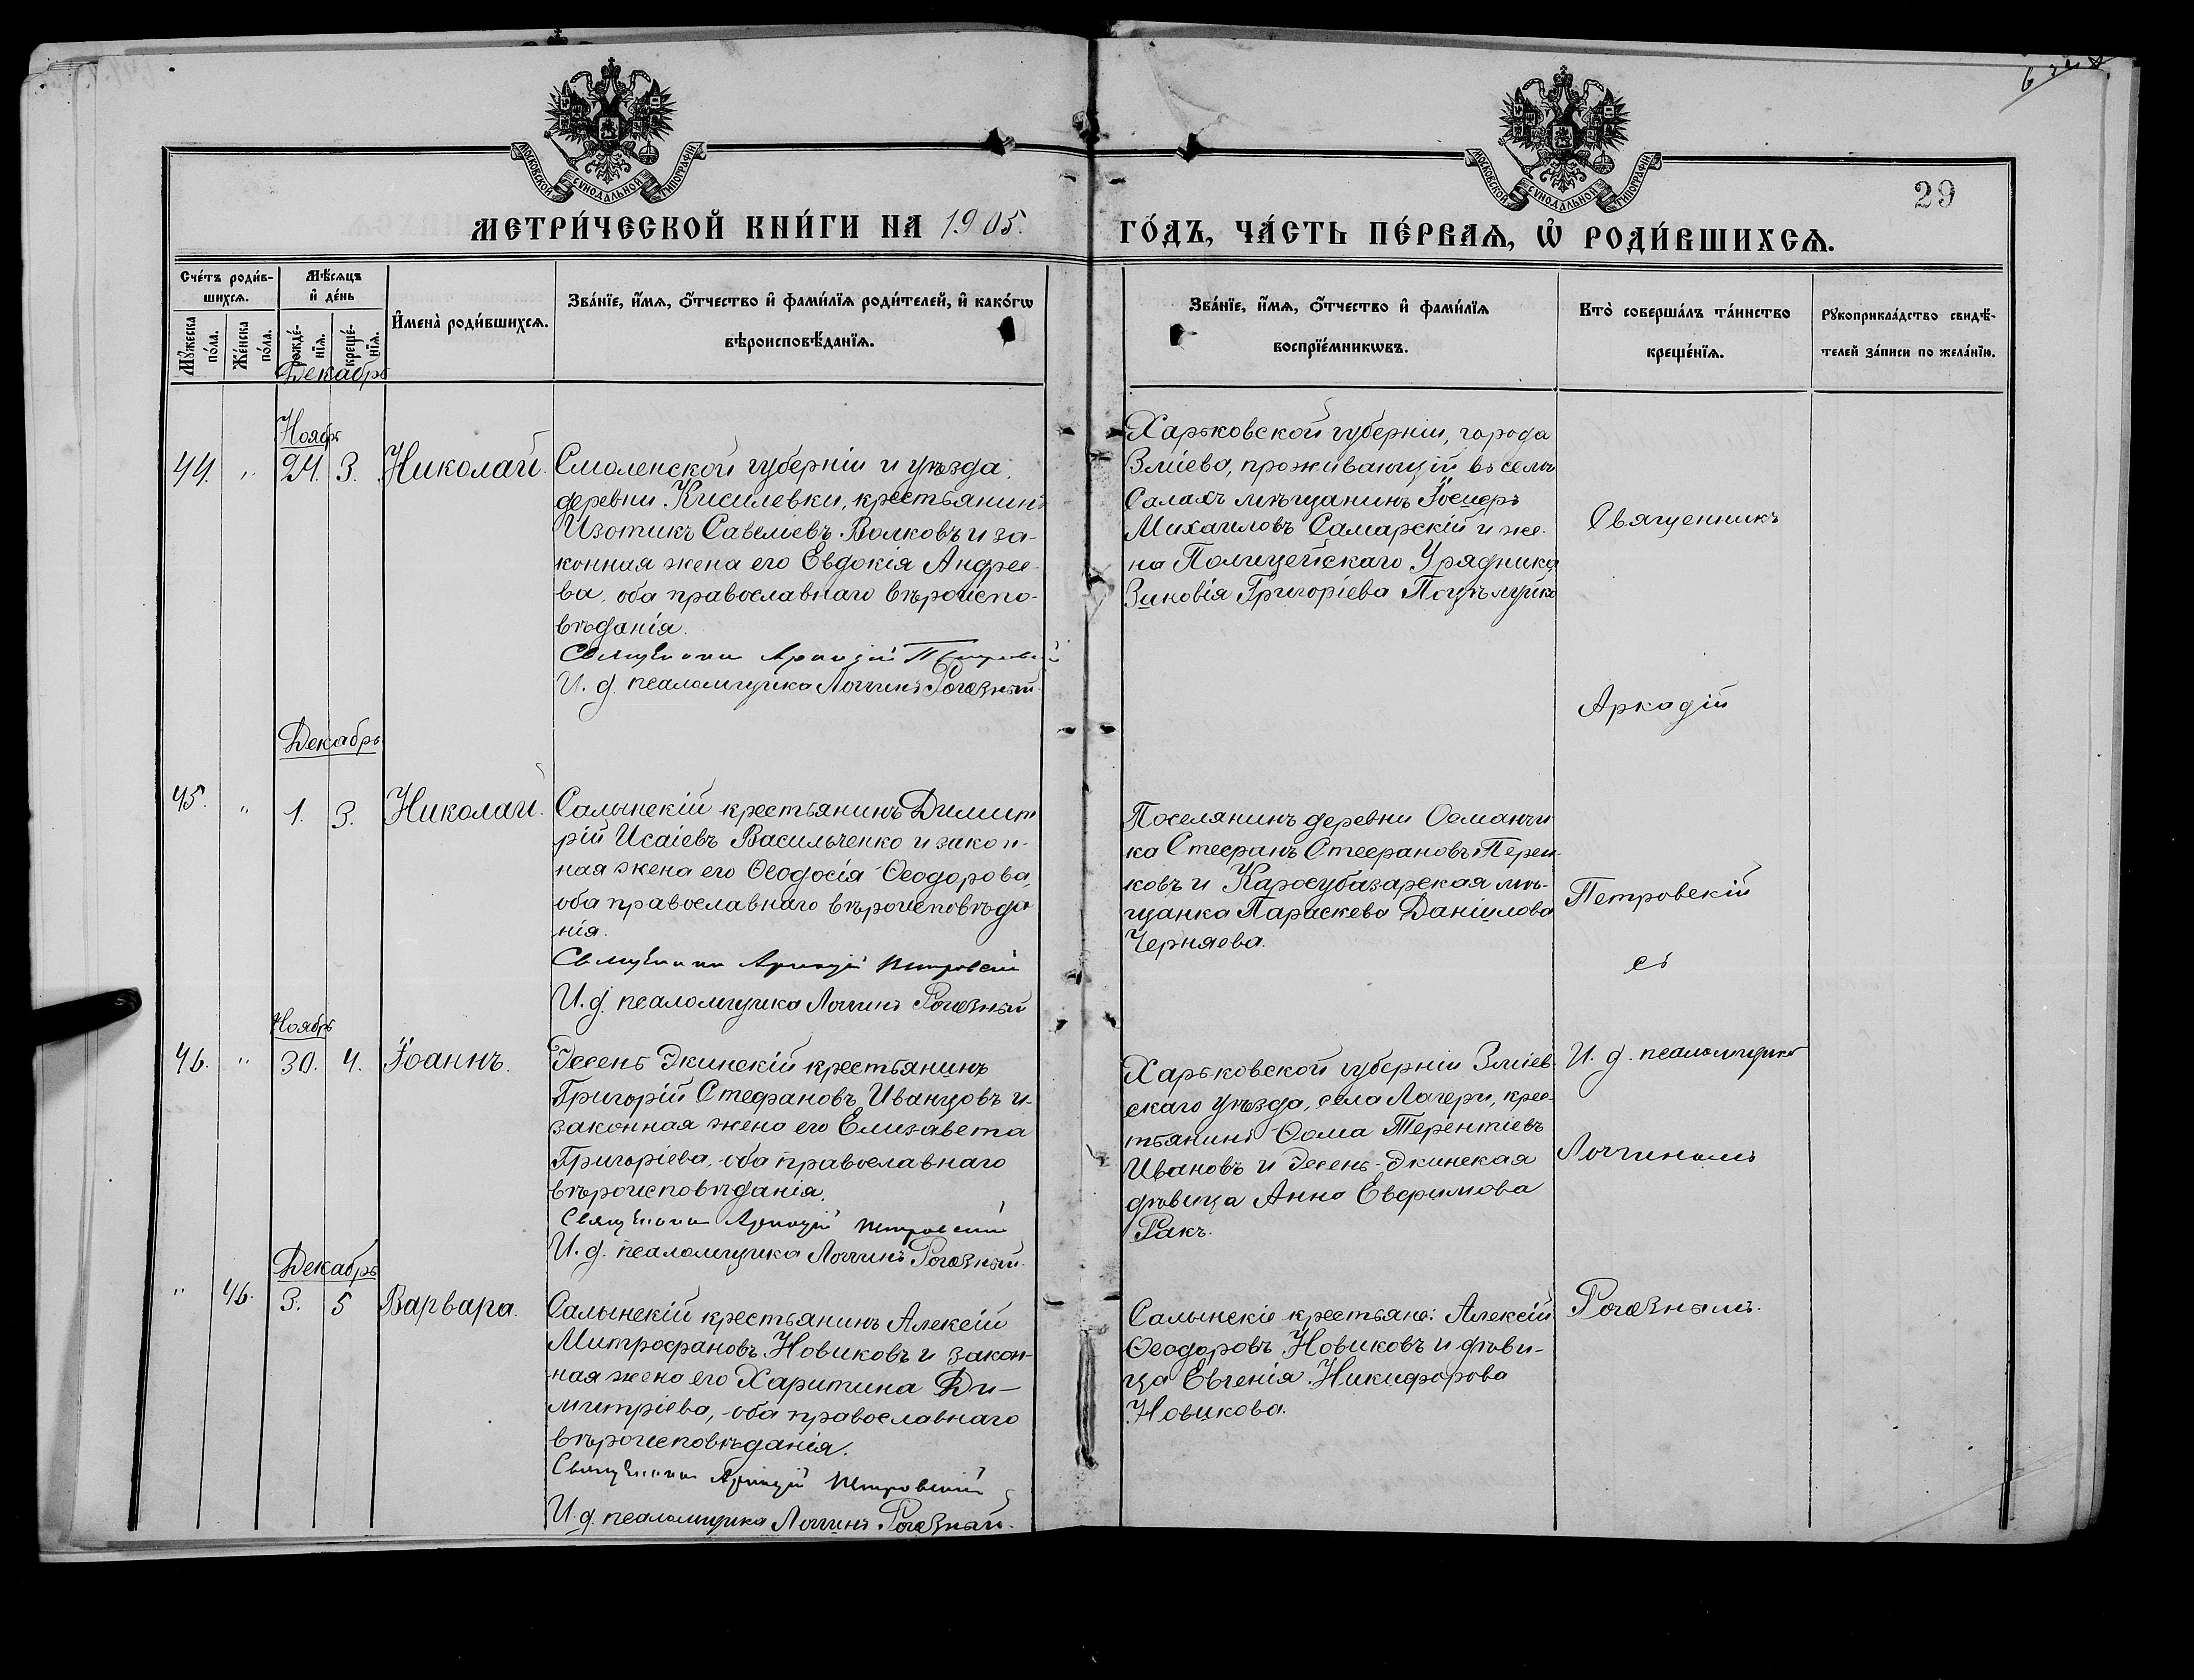 МОСКОВСКОЙ СѴНОДАЛЬНОЙ ТИПОГРАФІИ
МОСКОВСКОЙ СѴНОДАЛЬНОЙ ТИПОГРАФІИ
29
МЕТРИ́ЧЕСКОЙ КНИ́ГИ НА 1905.
ГО́ДЪ, ЧА́СТЬ ПЕ́РВАѦ, Ѽ РОДИ́ВШИХСѦ.
Сче́тъ роди́в-
шихсѧ.
Мꙋ́жеска по́ла.
Же́нска по́ла.
Мѣ́сѧцъ
и҆ де́нь
рожде́-
нїѧ.
креще́-
нїѧ.
И҆мена̀ роди́вшихсѧ.
Зва́нїе, и҆́мѧ, ѻ҆́тчество и҆ фами́лїѧ роди́телей, и҆ како́гѡ
вѣроисповѣ́данїѧ.
Зва́нїе, и҆́мѧ, ѻ҆́тчество и҆ фами́лїѧ
воспрїе́мникѡвъ.
Кто̀ соверша́лъ та́инство
креще́нїѧ.
Рꙋкоприкла́дство свидѣ́-
телей за́писи по жела́нїю.
Декабрь
Ноябрь
44. " 24. 3. Николай.
Смоленской губерніи и уѣзда,
деревни Кисилевки, крестьянинъ
Изотикъ Савеліевъ Волковъ и за-
конная жена его Евдокія Андрее-
ва, оба православнаго вѣроиспо-
вѣданія.
Священникъ Аркадій Петровскій
И. д. псаломщика Логгинъ Рогозный
Харьковской губерніи, города
Зміева, проживающій въ селѣ
Салахъ мѣщанинъ Іосифъ
Михаиловъ Самарскій и же-
на Полицейскаго Урядника
Зиновія Григоріева
Священникъ
Аркадій
Декабрь
45. " 1. 3. Николай.
Салынскій крестьянинъ Димит
рій Исаіевъ Васильченко и закон-
ная жена его Ѳеодосія Ѳеодорова,
оба православнаго вѣроисповѣда
нія.
Священникъ Аркадій Петровскій
И. д. псаломщика Логгинъ Рогозный
Поселянинъ деревни Османчи
ка Стефанъ Стефановъ
ковъ и Карасубазарская мѣ-
щанка Параскева Даніилова
Черняева.
Петровскій
съ
Ноябрь
46. " 30. 4. Іоаннъ.
Эсень Экинскій крестьянинъ
Григорій Стефановъ Иванцовъ и
законная жена его Елизавета
Григоріева, оба православнаго
вѣроисповѣданія.
Священникъ Аркадій Петровскій
И. д. псаломщика Логгинъ Рогозный.
Харьковской губерніи Зміев-
скаго уѣзда, села Лагери, крес-
тьянинъ Ѳома Терентіевъ
Ивановъ и Эсень-Экинская
дѣвица Анна Евфимова
Ракъ.
И. д. псаломщика
Логгиномъ
Декабрь
" 46. 3. 5 Варвара.
Салынскій крестьянинъ Алексій
Митрофановъ Новиковъ и закон-
ная жена его Харитина Ди-
митріева, оба православнаго
вѣроисповѣданія.
Священникъ Аркадій Петровскій
И. д. псаломщика Логгинъ Рогозный.
Салынскіе крестьяне: Алексій
Ѳеодоровъ Новиковъ и дѣви-
ца Евгенія Никифорова
Новикова.
Рогознымъ.